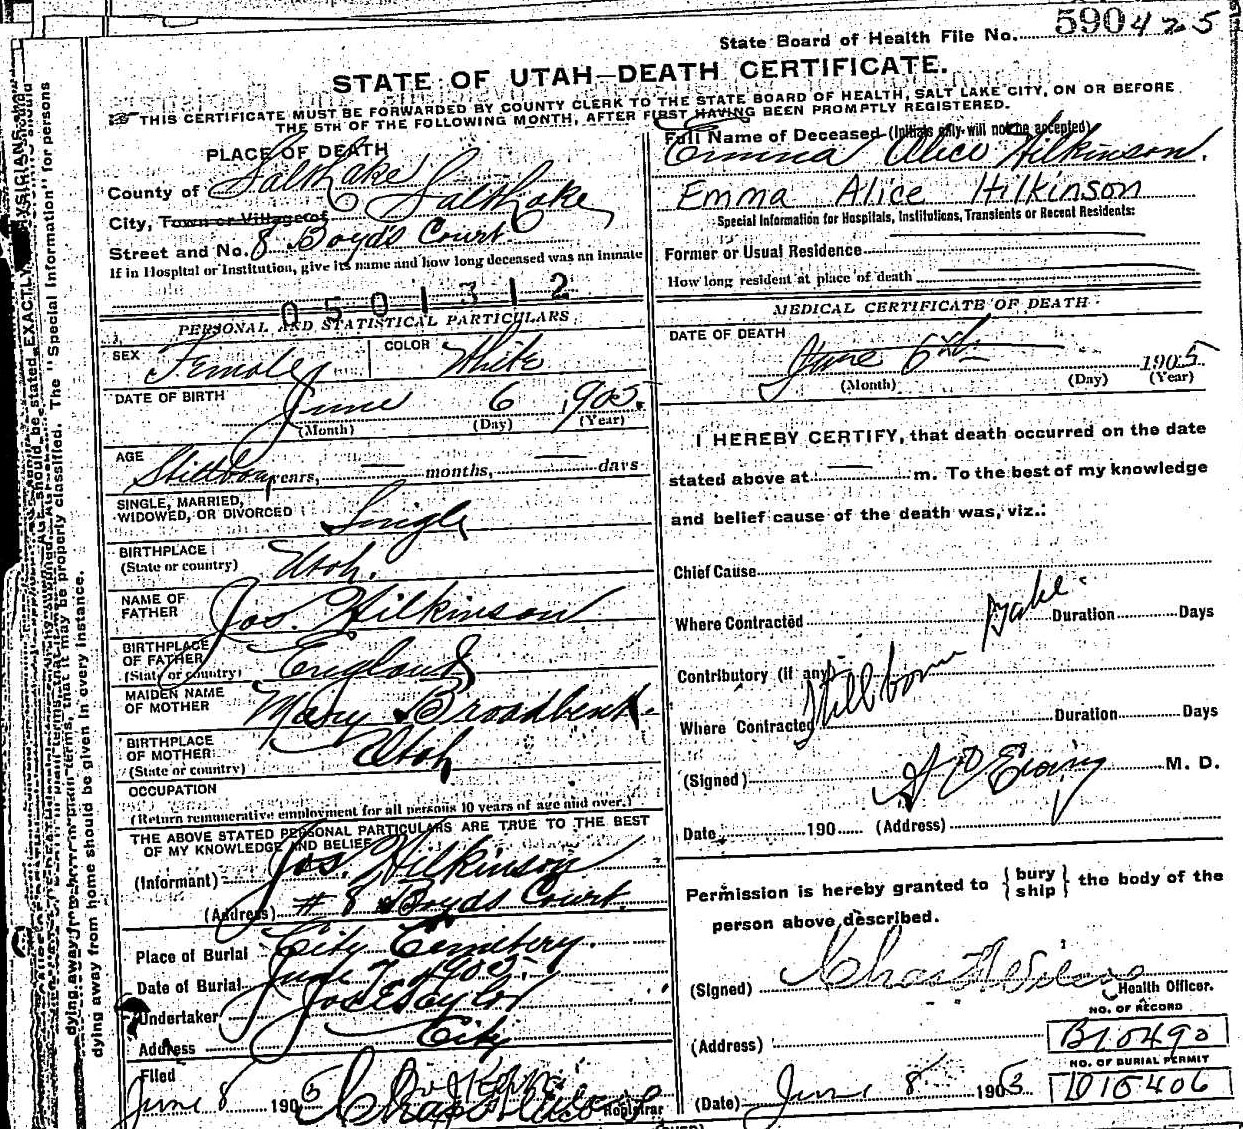 State Board of Health File No. 5904 25
STATE OF UTAH—DEATH CERTIFICATE.
THIS CERTIFICATE MUST BE FORWARDED BY COUNTY CLERK TO THE STATE BOARD OF HEALTH, SALT LAKE CITY, ON OR BEFORE
THE 5TH OF THE FOLLOWING MONTH, AFTER FIRST HAVING BEEN PROMPTLY REGISTERED.
PLACE OF DEATH
County of Salt Lake
City, Town or Village of Salt Lake
Street and No. 8 Boyds Court
If in Hospital or Institution, give its name and how long deceased was an inmate
0501312
PERSONAL AND STATISTICAL PARTICULARS
SEX Female COLOR White
DATE OF BIRTH June 6 1905.
(Month) (Day) (Year)
AGE
Stillborn years, — months, — days
SINGLE, MARRIED,
WIDOWED, OR DIVORCED Single
BIRTHPLACE
(State or country) Utah.
NAME OF
FATHER Jos. Hilkinson
BIRTHPLACE
OF FATHER
(State or country) England
MAIDEN NAME
OF MOTHER Mary Broadbent.
BIRTHPLACE
OF MOTHER
(State or country) Utah
OCCUPATION
(Return remunerative employment for all persons 10 years of age and over.)
THE ABOVE STATED PERSONAL PARTICULARS ARE TRUE TO THE BEST
OF MY KNOWLEDGE AND BELIEF
(Informant) Jos. Hilkinson
(Address) # 8 Boyds Court.
Place of Burial City Cemetery.
Date of Burial June 7 1905.
Undertaker Jos E Taylor
Address City
Filed
June 8 1905 Registrar
Full Name of Deceased (Initials only will not be accepted)
Emma Alice Hilkinson.
Emma Alice Hilkinson
Special Information for Hospitals, Institutions, Transients or Recent Residents:
Former or Usual Residence
How long resident at place of death
MEDICAL CERTIFICATE OF DEATH
DATE OF DEATH
June 6th 1905
(Month) (Day) (Year)
I HEREBY CERTIFY, that death occurred on the date
stated above at — m. To the best of my knowledge
and belief cause of the death was, viz.:
Chief Cause
Where Contracted Duration Days
Contributory (if any) Stillborn
Where Contracted Duration Days
(Signed) Ewing M. D.
Date 190 (Address)
Permission is hereby granted to { bury ship } the body of the
person above described.
(Signed) Chas
Health Officer.
NO. OF RECORD
(Address) B10490
NO. OF BURIAL PERMIT
(Date) June 8 1905 D15406
dying away from home should be given in every instance.
The "Special Information" for persons